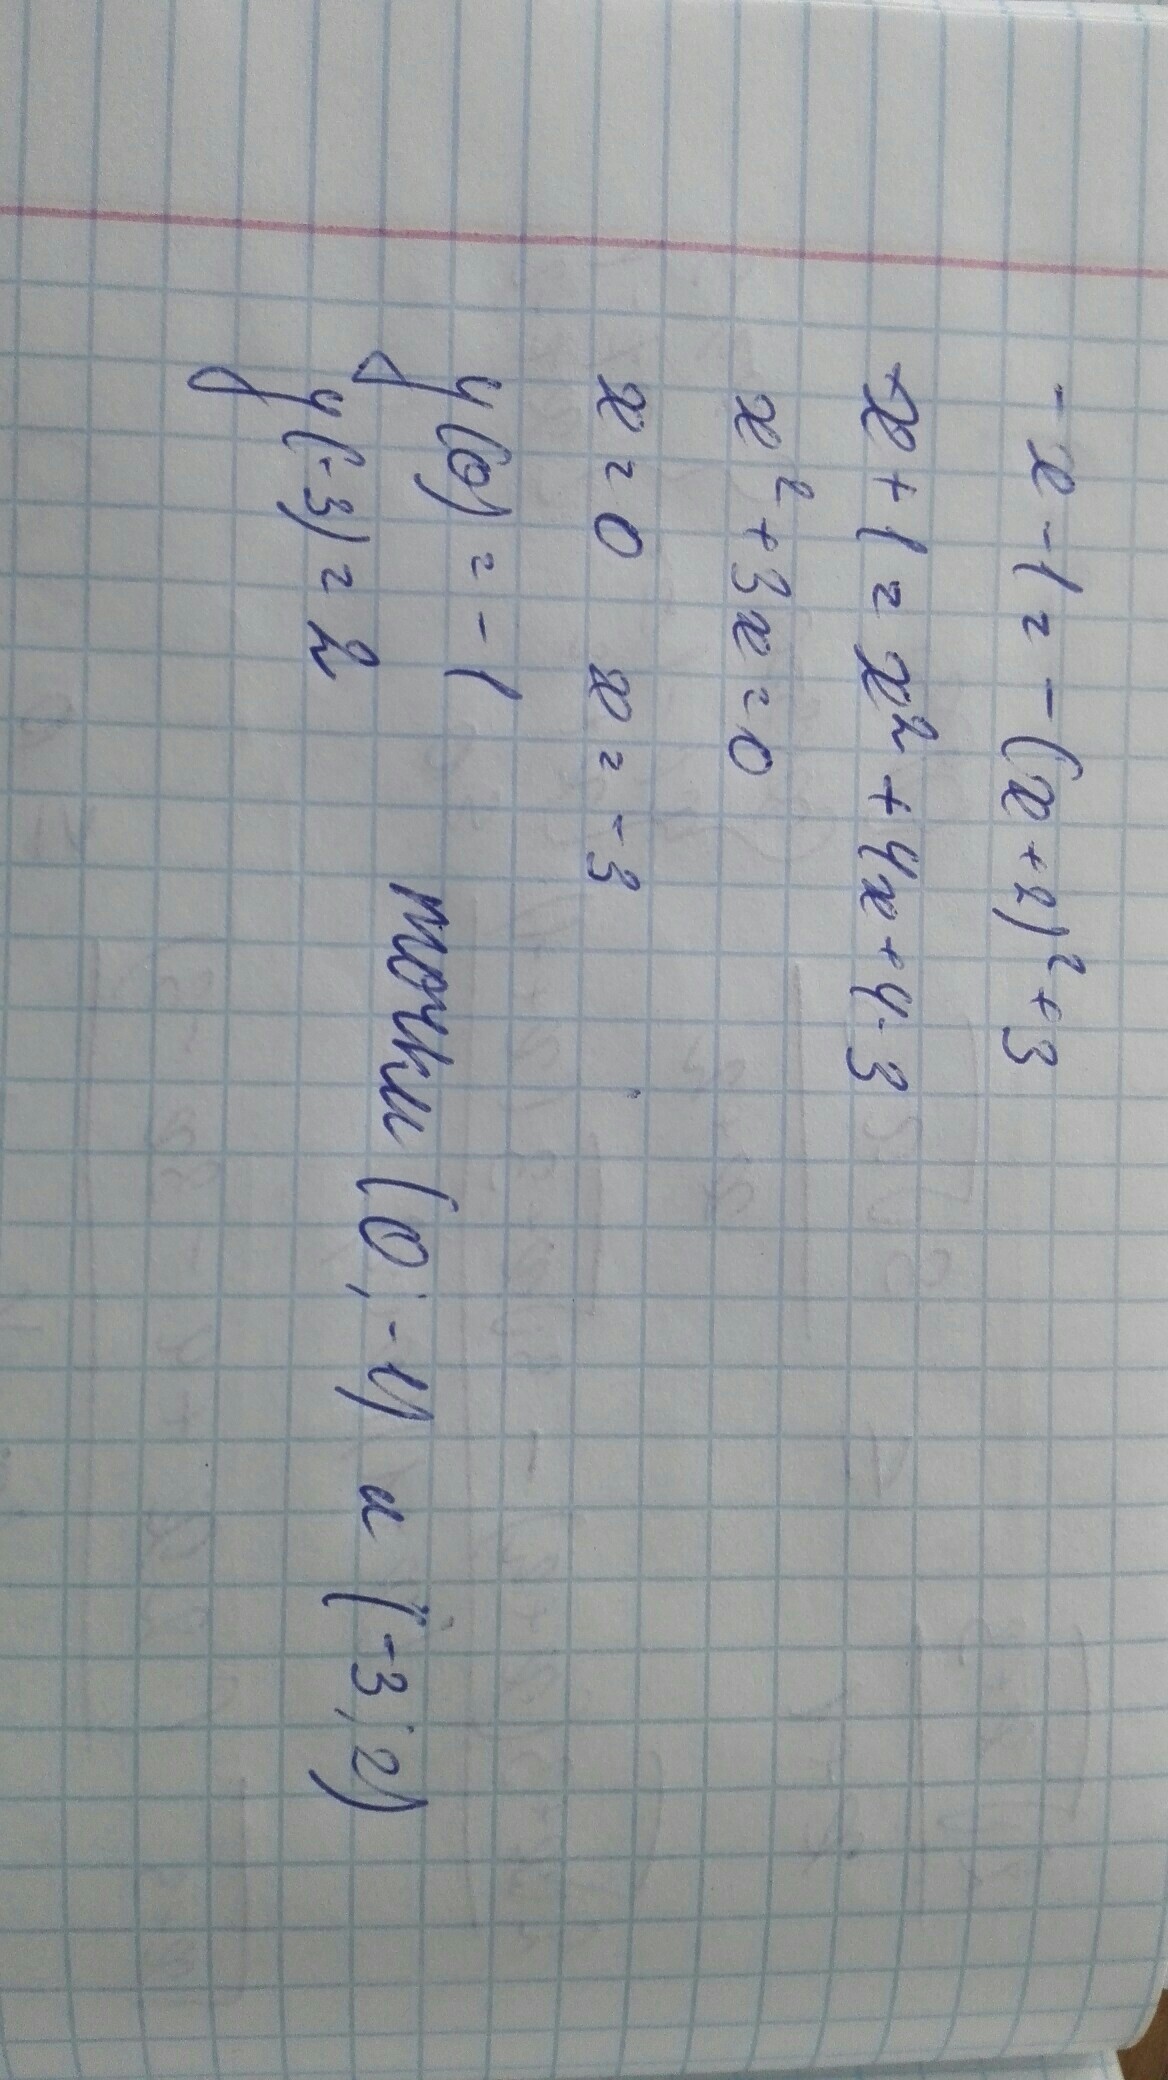 -x-1=-(x+2)²+3
x+1=x²+4x+4-3
x²+3x=0
x=0 x=-3
y(0)=-1
y(-3)=2
точки (0;-1) и (-3;2)